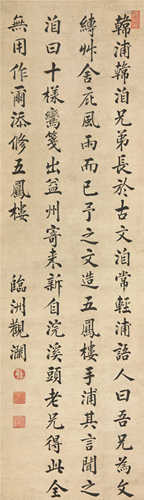 韓浦韓洎兄弟長於古文洎常輕浦語人曰吾兄為文
縛艸舍庇風雨而已予之文造五鳳樓手浦其言聞之
洎曰十樣鸞箋出益州寄来新自浣溪頭老兄得此全
無用作爾添修五鳳樓
臨洲觀瀾